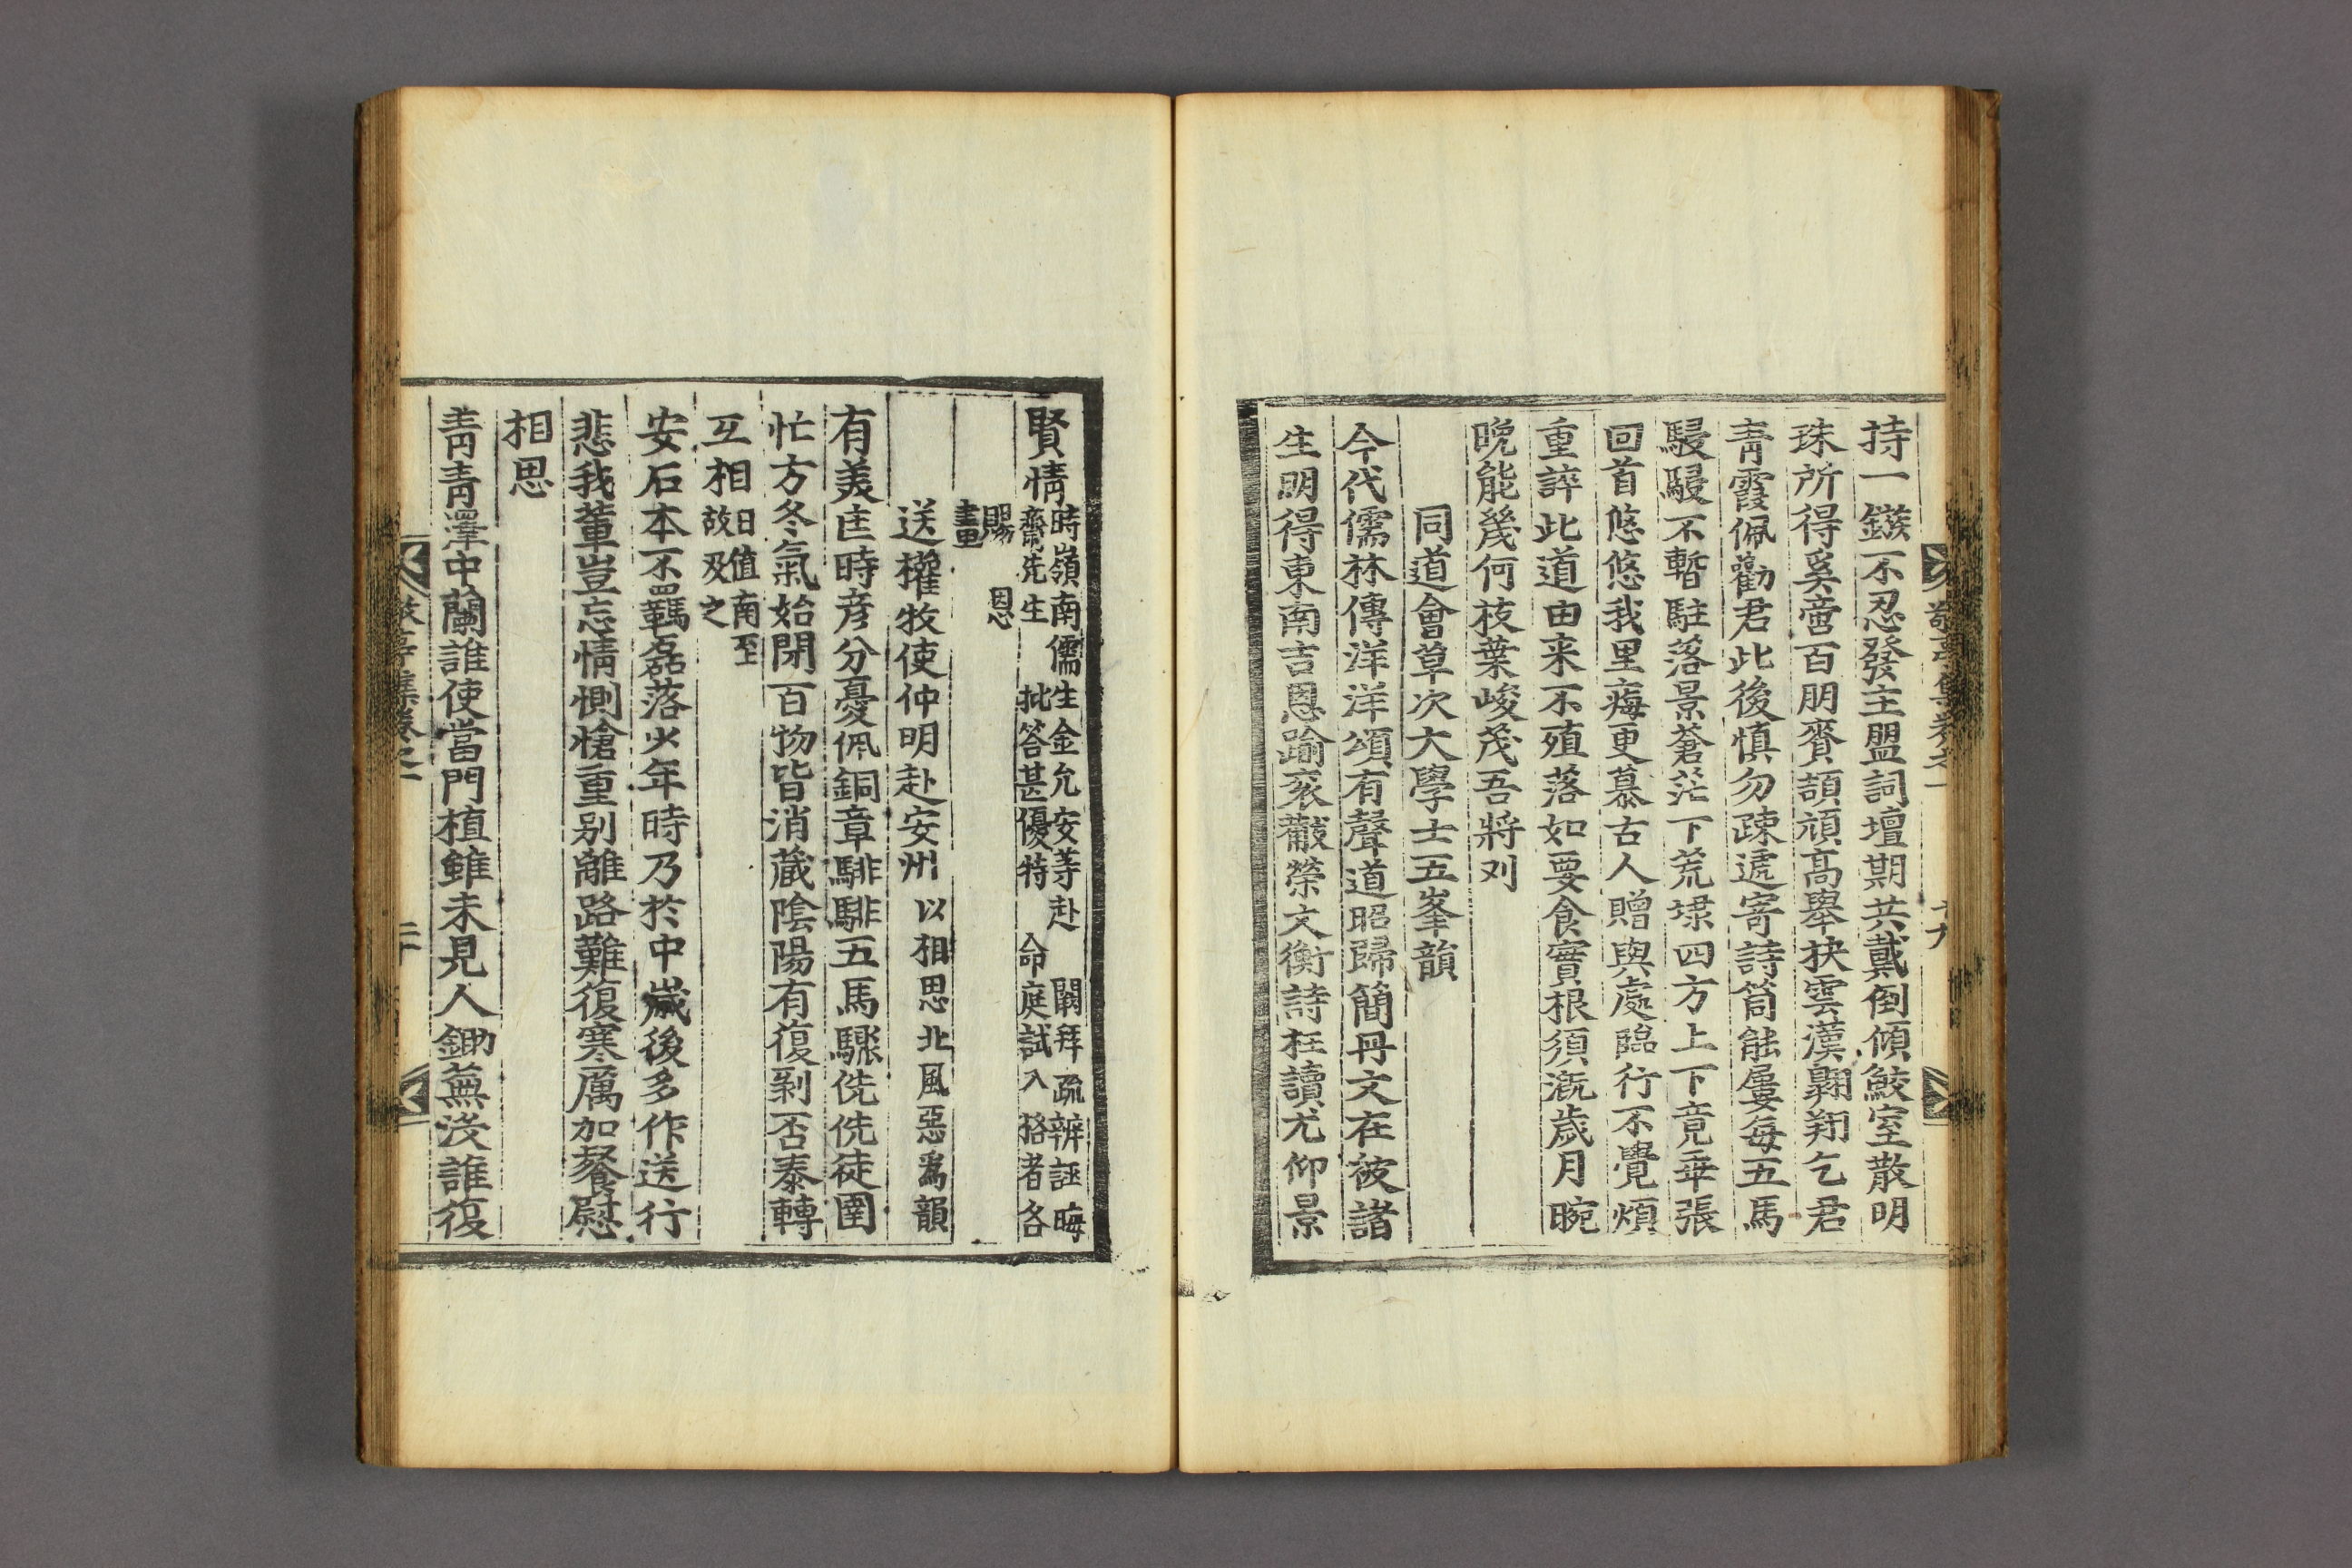 持一鏃不忍發主盟詞壇期共戴倒傾鮫室散明
珠所得奚啻百朋賚頡頏高擧抉雲漢翺翔乞君
靑霞佩勸君此後愼勿疎遞寄詩筒能屢每五馬
駸駸不暫駐落景蒼茫下荒埭四方上下竟乖張
回首悠悠我里痗更慕古人贈與處臨行不覺煩
重誶此道由来不殖落如要食實根須漑歲月晼
晩能幾何枝葉峻茂吾將刈
同道會草次大學士五峯韻
今代儒林傳洋洋頌有聲道昭歸簡冊文在被諸
生明得東南吉恩踰袞黻榮文衡詩枉讀尤仰景
賢情
時嶺南儒生金允安等赴 闕拜疏辨誣晦
齋先生 批答甚優特 命庭試入格者各
賜 恩
畫
送權牧使仲明赴安州 以相思北風惡爲韻
有美匡時彦分憂佩銅章騑騑五馬驟侁侁徒圉
忙方冬氣始閉百物皆消蔵陰陽有復剝否泰轉
互相
日值南至
故及之
安石本不羈磊落少年時乃於中歲後多作送行
悲我輩豈忘情惻愴重别離路難復寒厲加餐慰
相思
靑靑澤中蘭誰使當門植雖未見人鋤蕪沒誰復